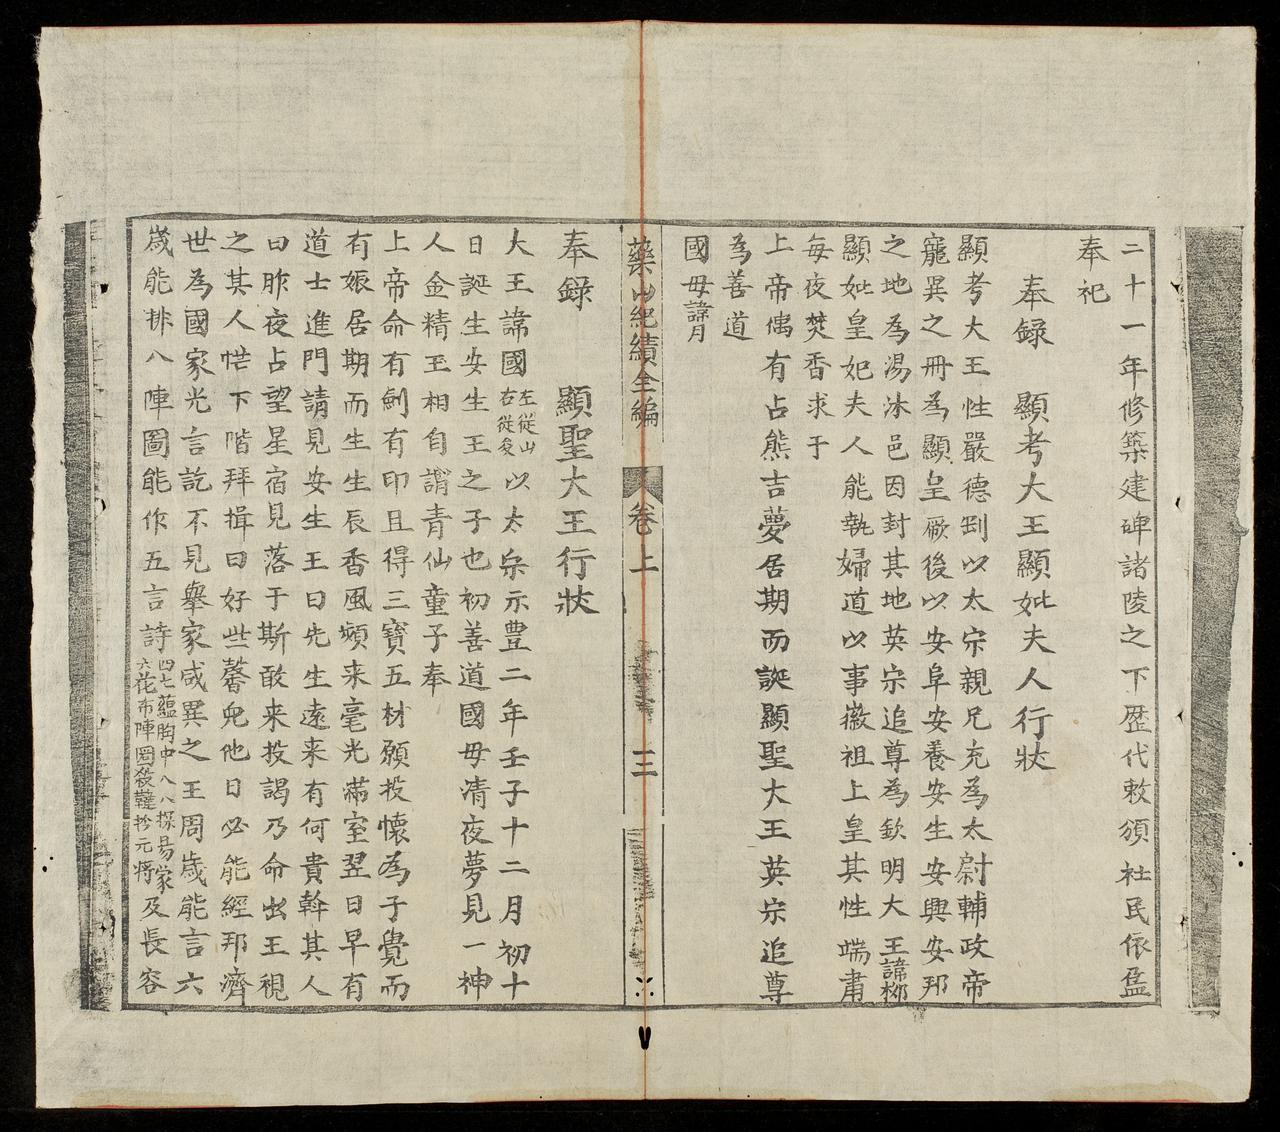 二十一年修築建碑諸陵之下歷代敕頒社民依
奉祀
奉録　顯考大王顯妣夫人行狀
顯考大王性嚴德剛以太宗親兄充為太尉輔政帝
寵異之冊為顯皇厥後以安阜安養安生安興安邦
之地為湯沐邑因封其地英宗追尊為欽明大王諱
顯妣皇妃夫人能執婦道以事徽祖上皇其性端肅
每夜焚香求于
上帝偶有占熊吉夢居期而誕顯聖大王英宗追尊
為善道
國毋諱月
藥山紀績全編　卷上　三
奉録　顯聖大王行狀
大王諱國左從山右從以太宗示豊二年壬子十二月初十
日誕生安生王之子也初善道國毋清夜夢見一神
人金精玉相自謂青仙童子奉
上帝命有劍有印且得三寶五材願投懷為子覺而
有娠居期而生生辰香風頻来毫光滿室翌日早有
道士進門請見安生王曰先生遠来有何貴幹其人
曰昨夜占望星宿見落于斯敢来投謁乃命出王視
之其人忙下階拜揖曰好些馨兒他日必能經邦濟
世為國家光言訖不見舉家咸異之王周歲能言六
歲能排八陣圖能作五言詩四七蘊胸中八八探易家六花布陣圖殺韃抄元將及長容